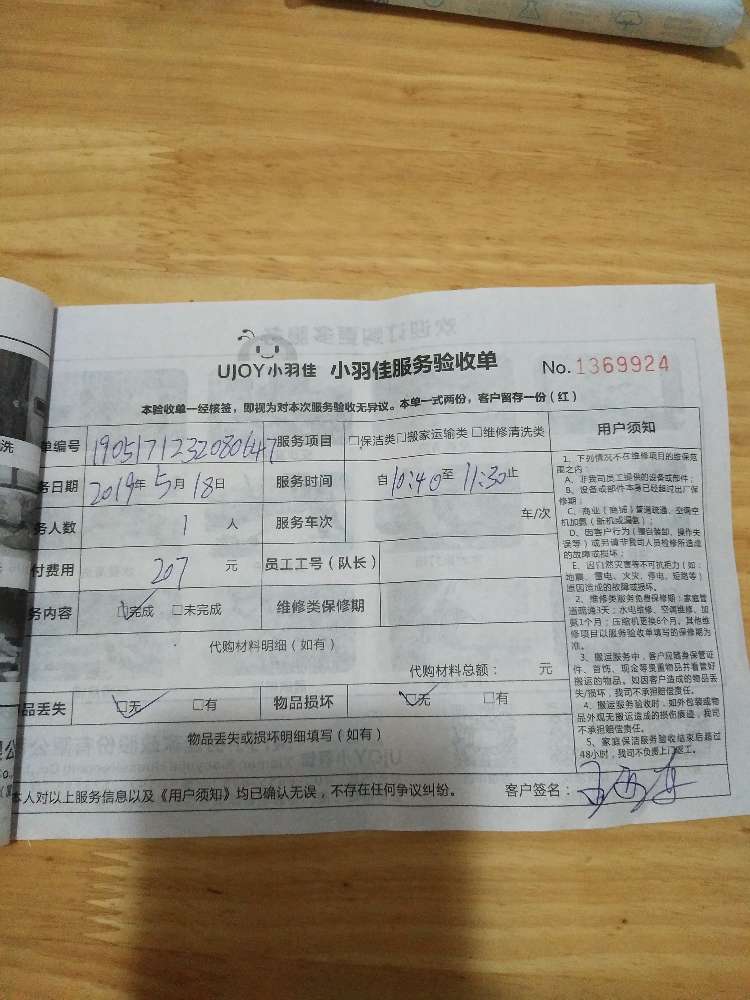 UJOY小羽佳 小羽佳服务验收单 No. 1369924
本验收单一经核签，即视为对本次服务验收无异议。本单一式两份，客户留存一份（红）
单编号 1905171232080647 服务项目 □保洁类□搬家运输类□维修清洗类
务日期 2019年5月18日 服务时间 自10:40至11:30止
务人数 1 人 服务车次 车/次
付费用 207 元 员工工号（队长）
务内容 □完成 □未完成 维修类保修期
代购材料明细（如有）
代购材料总额： 元
品丢失 □无 □有 物品损坏 □无 □有
物品丢失或损坏明细填写（如有）
本人对以上服务信息以及《用户须知》均已确认无误，不存在任何争议纠纷。 客户签名：
用户须知
1、下列情况不在维修项目的维保范
围之内：
A、非我司员工提供的设备或部件；
B、设备或部件本身已经超过出厂保
修期；
C、商业（商铺）管道疏通、空调空
机加氨（新机或漏氨）；
D、因客户行为（擅自装卸、操作失
误等）或另请非我司人员检修所造成
的故障或损坏；
E、因自然灾害等不可抗拒力（如：
地震、雷电、火灾、停电、短路等）
原因造成的故障或损坏。
2、维修类服务免费保修期：家庭管
道疏通3天；水电维修、空调维修、加
氨1个月；压缩机更换6个月。其他维
修项目以服务验收单填写的保修期为
准。
3、搬运服务中，客户应随身保管证
件、首饰、现金等贵重物品并看管好
搬运的物品。如因客户造成的物品丢
失/损坏，我司不承担赔偿责任。
4、搬运服务验收时，如外包装或物
品外观无搬运造成的损伤痕迹，我司
不承担赔偿责任。
5、家庭保洁服务验收结束后超过
48小时，我司不负责上门返工。
洗